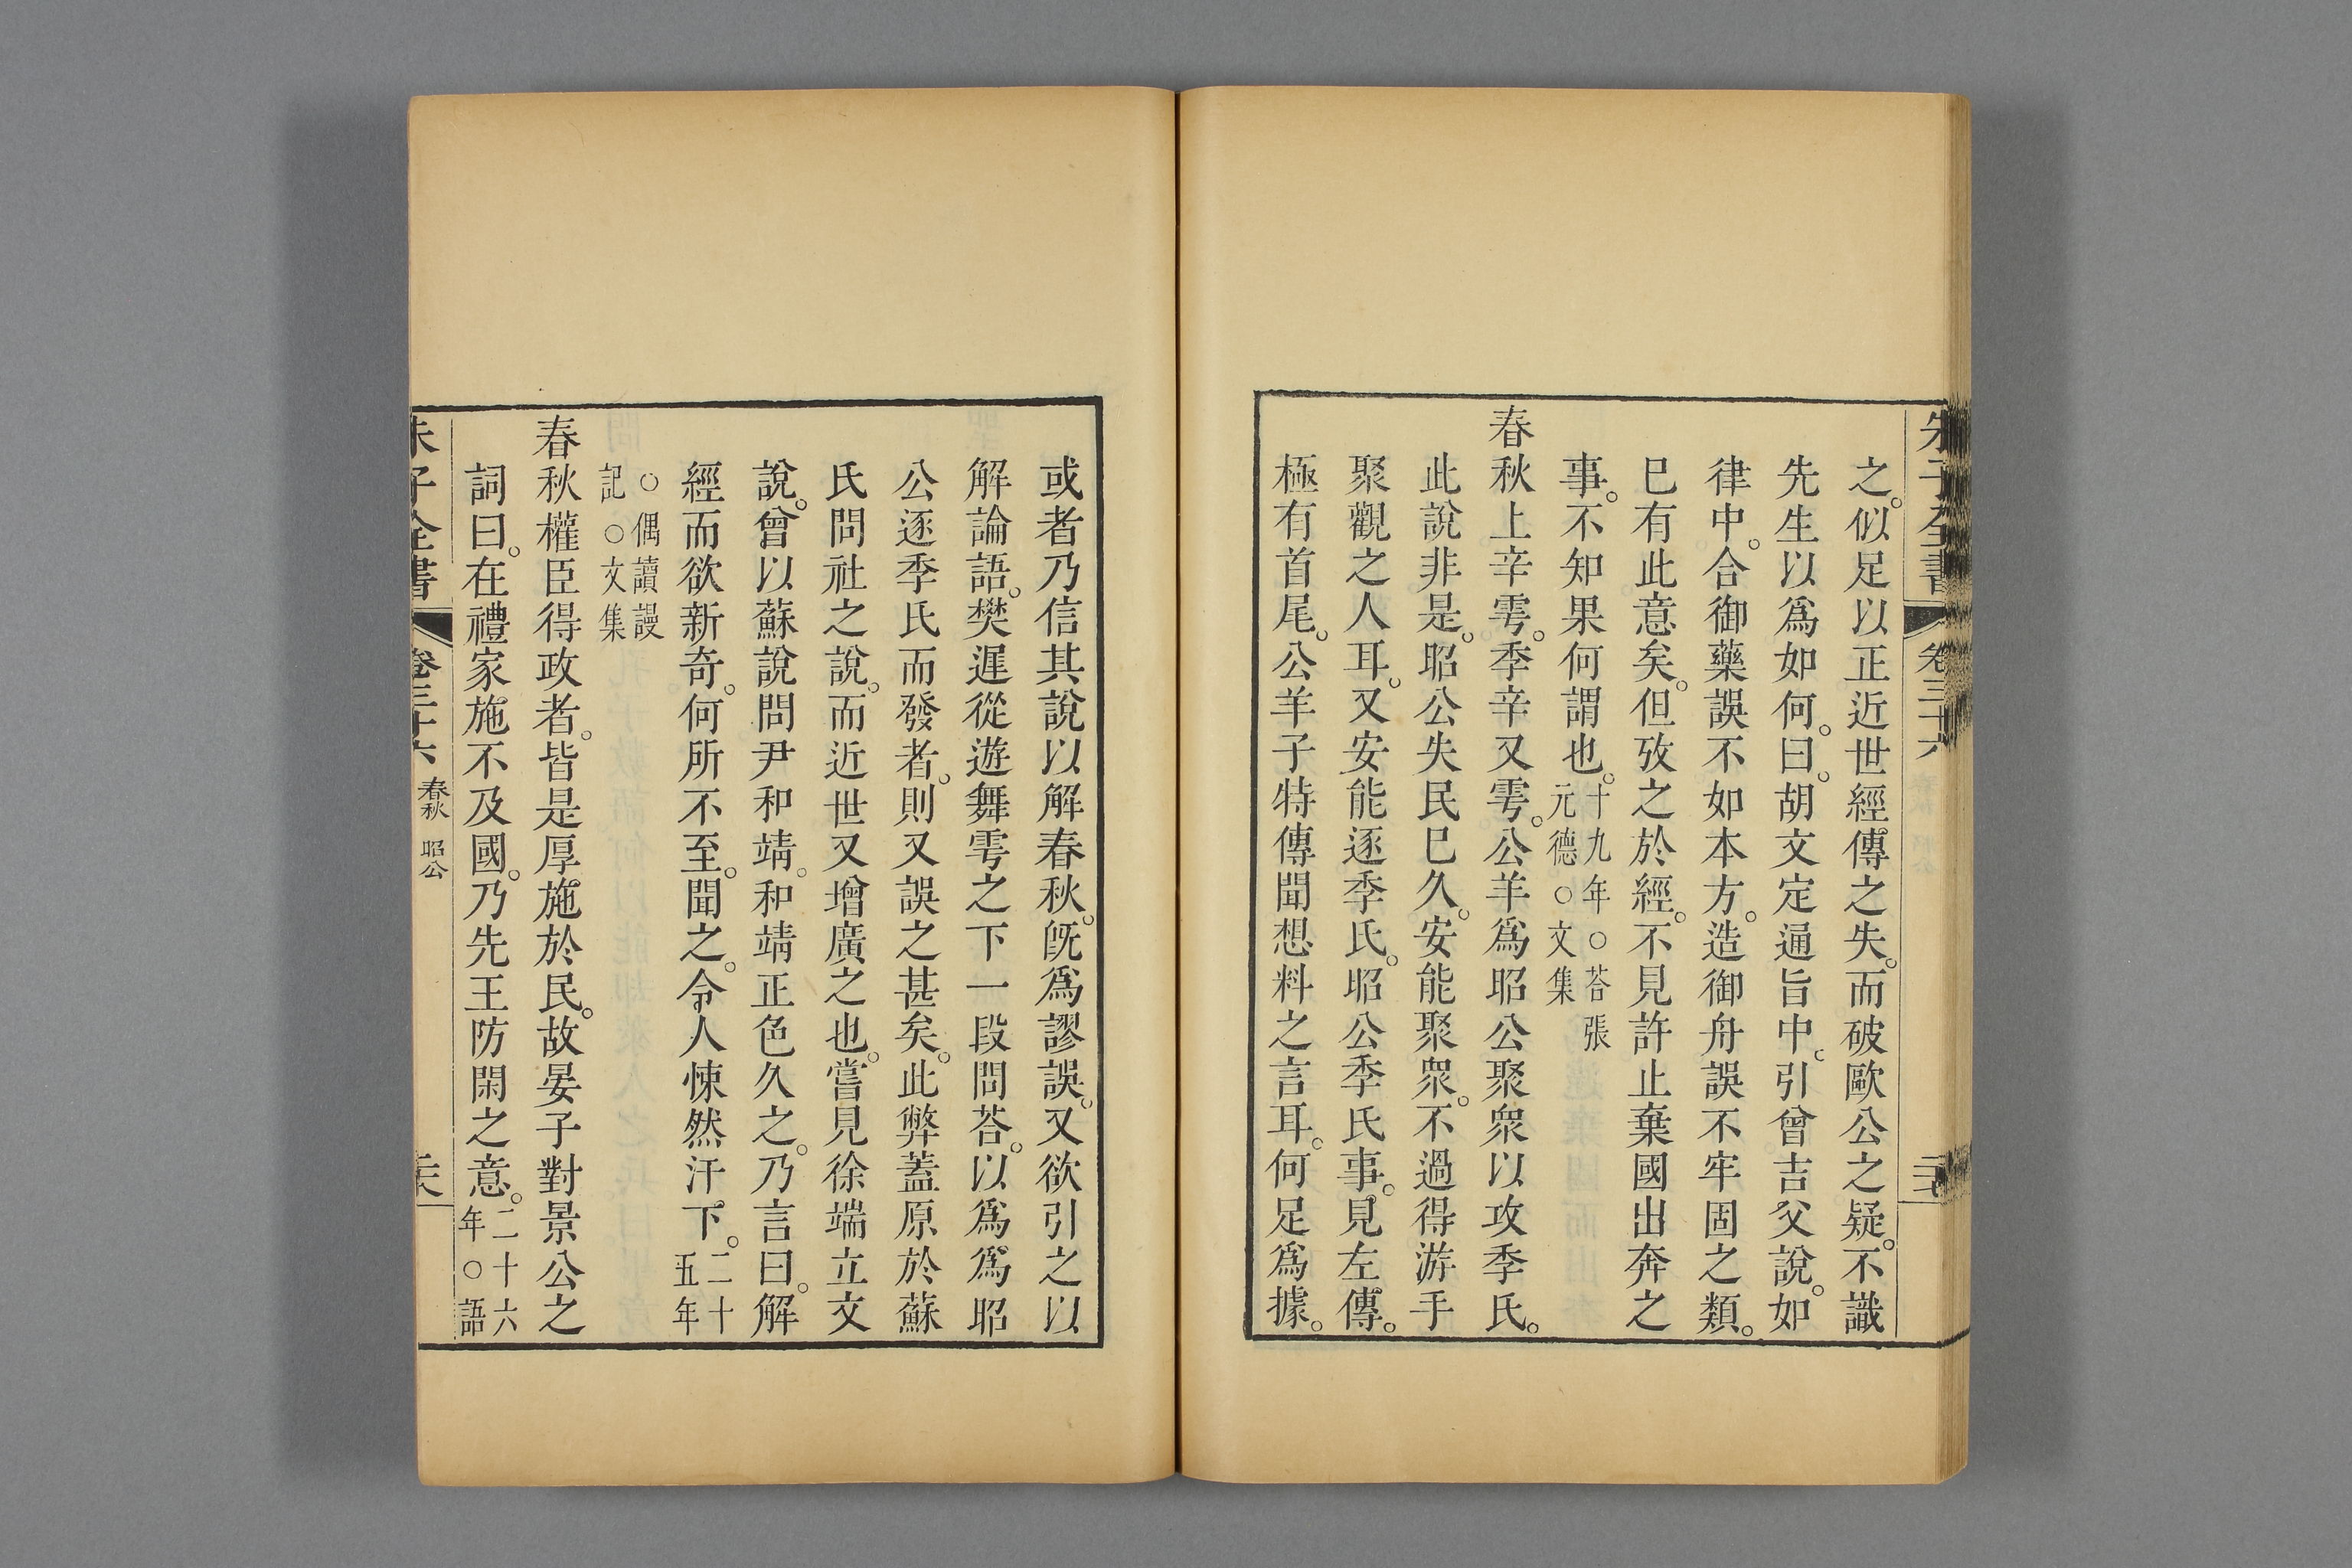 朱子全書 卷三十六
之。似足以正近世經傳之失。而破歐公之疑。不識
先生以爲如何。曰。胡文定通旨中。引曾吉父說。如
律中。合御藥誤不如本方。造御舟誤不牢固之類。
已有此意矣。但攷之於經。不見許止棄國出奔之
事。不知果何謂也。十九年○荅張元德○文集
春秋上辛雩。季辛又雩。公羊爲昭公聚衆以攻季氏。
此說非是。昭公失民已久。安能聚衆。不過得游手
聚觀之人耳。又安能逐季氏。昭公季氏事。見左傳。
極有首尾。公羊子特傳聞想料之言耳。何足爲據。
或者乃信其說以解春秋。旣爲謬誤。又欲引之以
解論語。樊遲從遊舞雩之下一段問荅。以爲爲昭
公逐季氏而發者。則又誤之甚矣。此弊蓋原於蘇
氏問社之說。而近世又增廣之也。嘗見徐端立文
說。曾以蘇說問尹和靖。和靖正色久之。乃言曰。解
經而欲新奇。何所不至。聞之。令人悚然汗下。二十五年
○偶讀謾記○文集
春秋權臣得政者。皆是厚施於民。故晏子對景公之
詞曰。在禮家施不及國。乃先王防閑之意。二十六年○語
朱子全書 卷三十六 春秋 昭公